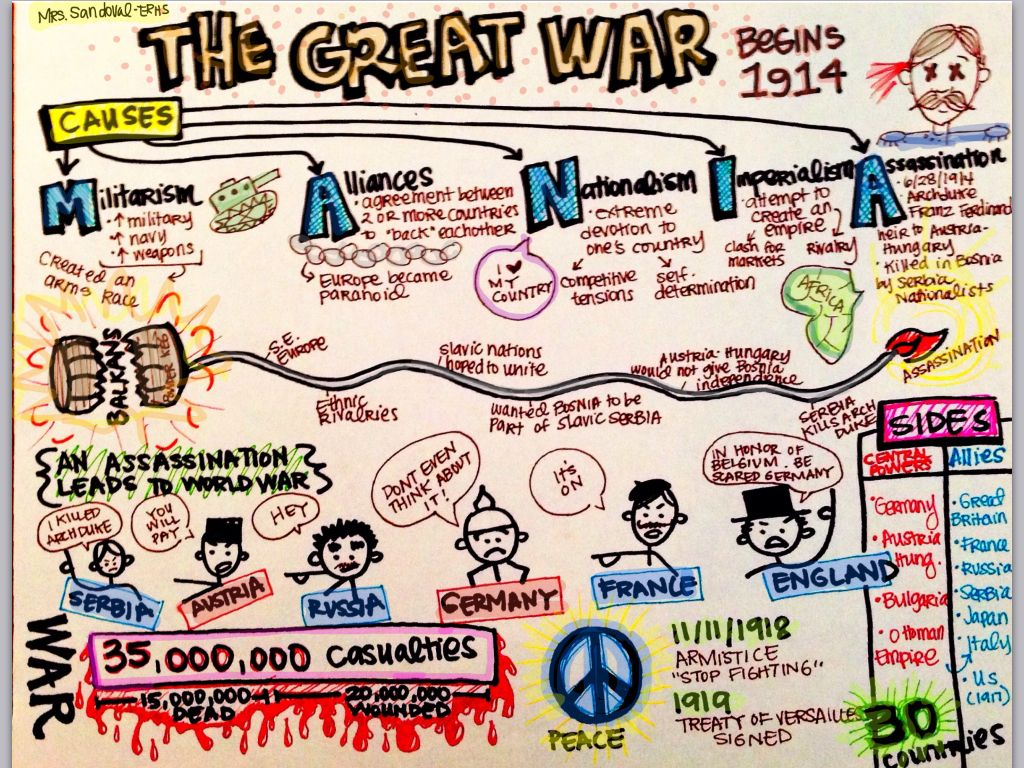 Mrs. Sandoval-ERHS
THE GREAT WAR
BEGINS
1914
CAUSES
Militarism
• ↑ military
• ↑ navy
• ↑ weapons
Created an
arms Race
Alliances
• agreement between
2 or more countries
to "back" eachother
Europe became
paranoid
Nationalism
• extreme
devotion to
one's country
I ♥
MY
COUNTRY
competitive
tensions
self-
determination
Imperialism
• attempt to
create an
empire
clash for
markets
Rivalry
AFRICA
Assassination
• 6/28/1914
Archduke
Franz Ferdinand
heir to Austria-
Hungary
• Killed in Bosnia
by Serbia
Nationalists
BALKANS
POWDER KEG
S.E.
EUROPE
Ethnic
Rivalries
Slavic nations
hoped to unite
wanted BOSNIA to be
part of Slavic SERBIA
Austria-Hungary
would not give Bosnia
independence
SERBIA
KILLS ARCH
DUKE
ASSASSINATION
{AN ASSASSINATION
LEADS TO WORLD WAR}
I KILLED
ARCHDUKE
YOU
WILL
PAY
HEY
DON'T EVEN
THINK ABOUT
IT!
IT'S
ON
IN HONOR OF
BELGIUM. BE
SCARED GERMANY
SERBIA
AUSTRIA
RUSSIA
GERMANY
FRANCE
ENGLAND
SIDES
CENTRAL
POWERS
• Germany
• Austria
Hung.
• Bulgaria
• Ottoman
Empire
Allies
• Great
Britain
• France
• Russia
• Serbia
• Japan
• Italy
• U.S.
(1917)
30
countries
WAR
35,000,000 casualties
15,000,000
DEAD
20,000,000
WOUNDED
PEACE
11/11/1918
ARMISTICE
"STOP FIGHTING"
1919
TREATY OF VERSAILLES
SIGNED